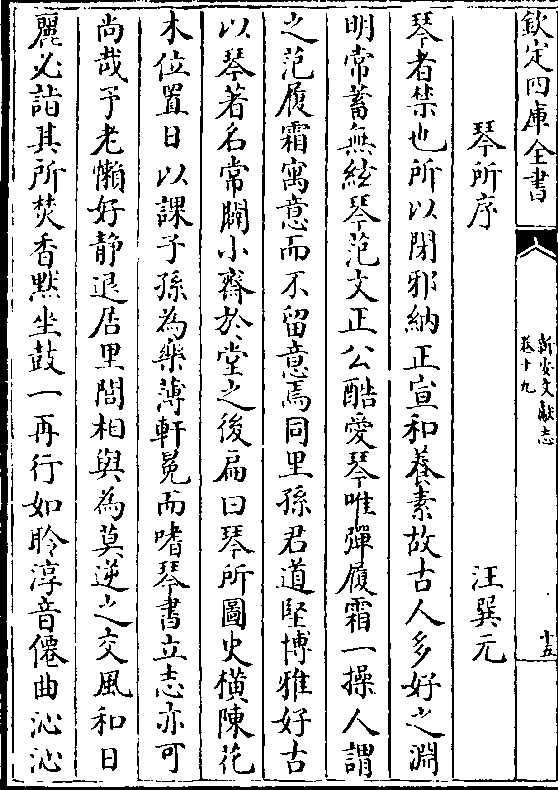 欽定四庫全書
新安文獻志
卷十九
十五
琴所序　汪巽元
琴者禁也所以閑邪納正宣和養素故古人多好之淵
明常蓄無絃琴范文正公酷愛琴唯彈履霜一操人謂
之范履霜寓意而不留意焉同里孫君道堅博雅好古
以琴著名常闢小齋於堂之後扁曰琴所圖史橫陳花
木位置日以課子孫為樂薄軒冕而嗜琴書立志亦可
尚哉予老懶好靜退居里閭相與為莫逆之交風和日
麗必詣其所焚香黙坐鼓一再行如聆淳音僊曲沁沁